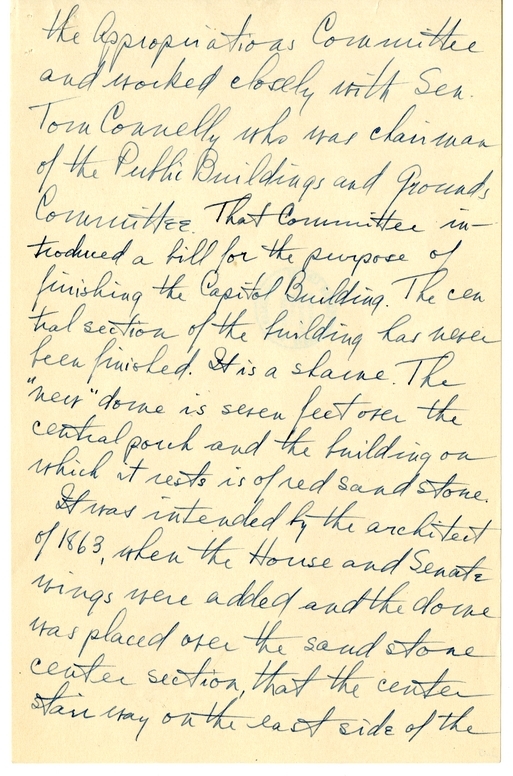 the Appropriations Committee
and worked closely with Sen.
Tom Connelly who was chairman
of the Public Buildings and Grounds
Committee. That Committee in-
troduced a bill for the purpose of
finishing the Capitol Building. The cen
tral section of the building has never
been finished. It is a shame. The
"new" dome is seven feet over the
central porch and the building on
which it rests is of red sand stone.
It was intended by the architect
of 1863, when the House and Senate
wings were added and the dome
was placed over the sand stone
center section, that the center
stair way on the east side of the